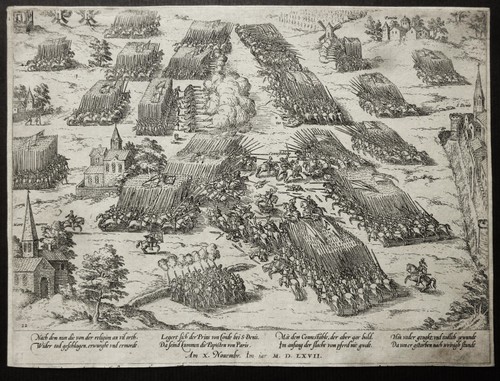 22
Nach dem nun die von der religion an vil orth
Wider sind geschlagen, erwurgtt vnd ermordt.
Legert sich der Prins von Conde bei S. Denis.
Da seind kommen die Papisten von Paris.
Mit dem Connestable, der aber gar bald.
Im anfang der slacht vom pferd mit gwalt.
Hin vnder vnd todlich gewundt
Da von er gestorben nach stundt.
Am X. Nouembr. Im iar M. D. LXVII.